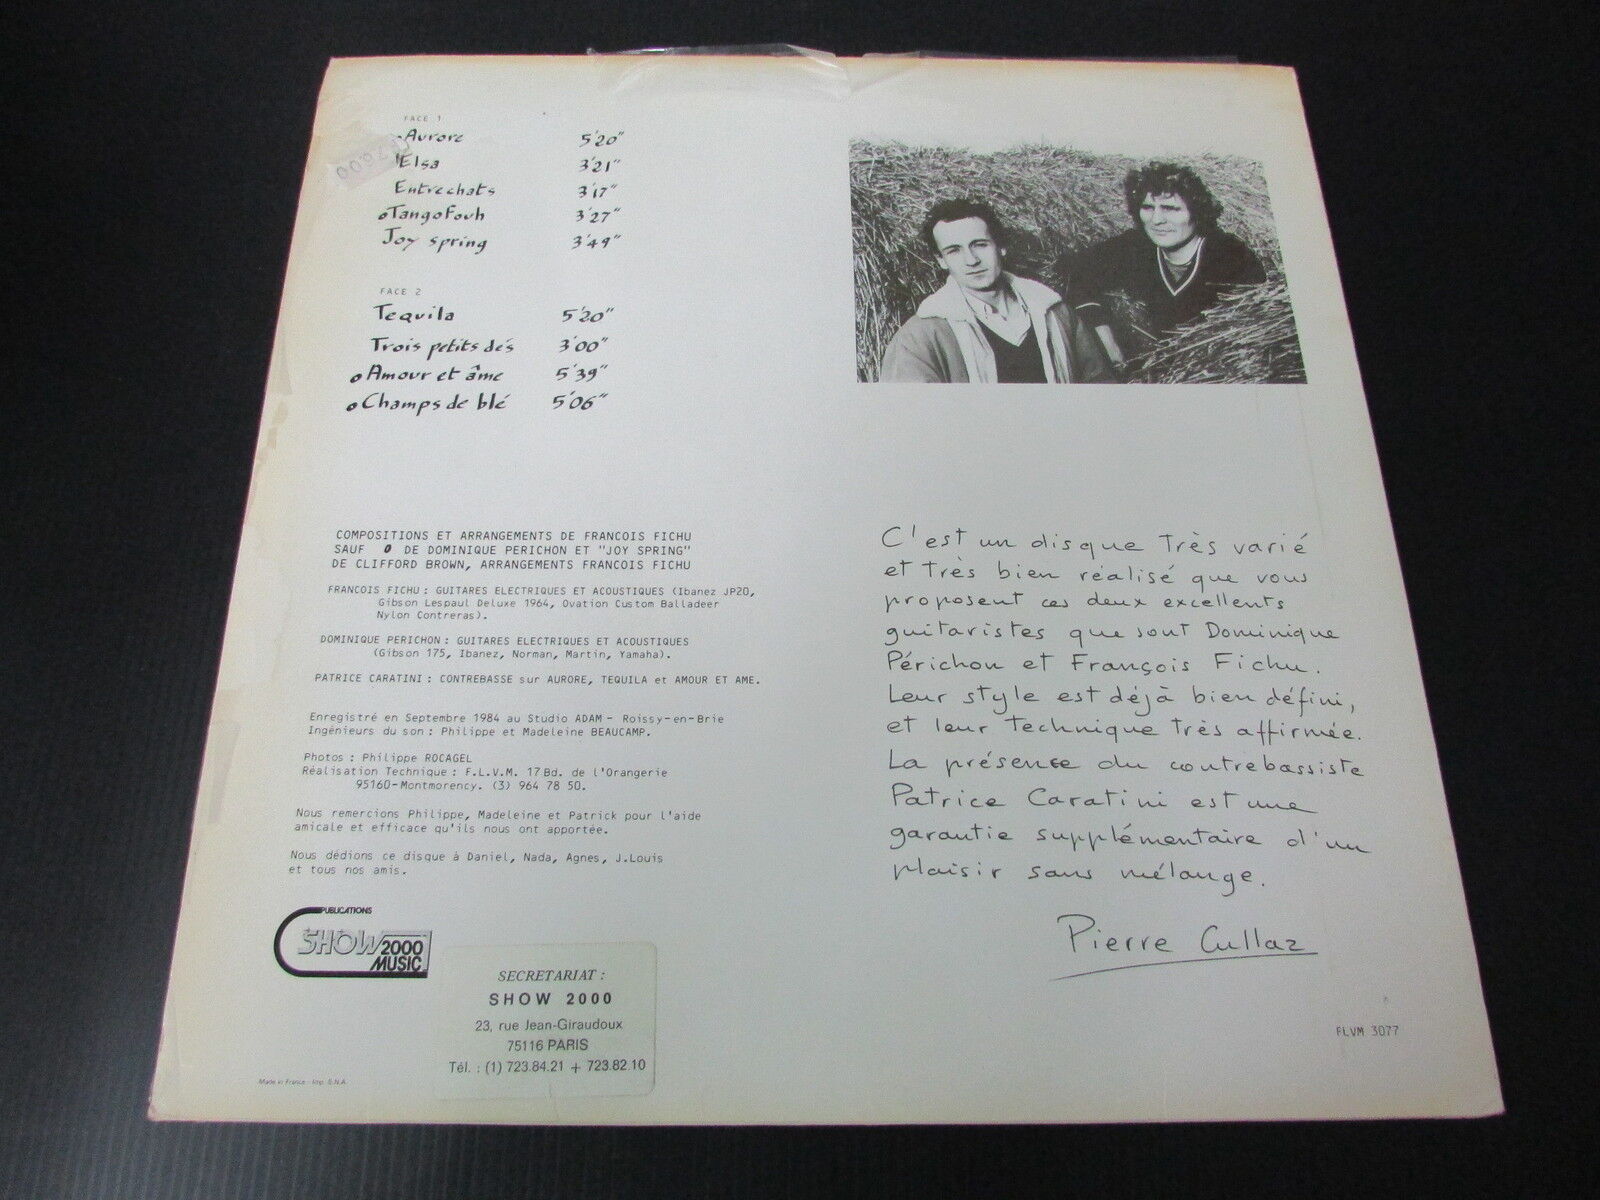 FACE 1
Aurore 5'20"
Elsa 3'21"
Entrechats 3'17"
o Tango Fouh 3'27"
Joy spring 3'49"
FACE 2
Tequila 5'20"
Trois petits dés 3'00"
o Amour et âme 5'39"
o Champs de blé 5'06"
COMPOSITIONS ET ARRANGEMENTS DE FRANCOIS FICHU
SAUF O DE DOMINIQUE PERICHON ET "JOY SPRING"
DE CLIFFORD BROWN, ARRANGEMENTS FRANCOIS FICHU
FRANCOIS FICHU : GUITARES ELECTRIQUES ET ACOUSTIQUES (Ibanez JP20,
Gibson Lespaul Deluxe 1964, Ovation Custom Balladeer
Nylon Contreras).
DOMINIQUE PERICHON : GUITARES ELECTRIQUES ET ACOUSTIQUES
(Gibson 175, Ibanez, Norman, Martin, Yamaha).
PATRICE CARATINI : CONTREBASSE sur AURORE, TEQUILA et AMOUR ET AME.
Enregistré en Septembre 1984 au Studio ADAM - Roissy-en-Brie
Ingénieurs du son : Philippe et Madeleine BEAUCAMP.
Photos : Philippe ROCAGEL
Réalisation Technique : F.L.V.M. 17 Bd. de l'Orangerie
95160-Montmorency. (3) 964 78 50.
Nous remercions Philippe, Madeleine et Patrick pour l'aide
amicale et efficace qu'ils nous ont apportée.
Nous dédions ce disque à Daniel, Nada, Agnes, J.Louis
et tous nos amis.
PUBLICATIONS
SHOW 2000
MUSIC
SECRETARIAT :
SHOW 2000
23, rue Jean-Giraudoux
75116 PARIS
Tél. : (1) 723.84.21 + 723.82.10
Made in France - Imp. S.N.A.
C'est un disque très varié
et très bien réalisé que vous
proposent ces deux excellents
guitaristes que sont Dominique
Périchon et François Fichu.
Leur style est déjà bien défini,
et leur technique très affirmée.
La présence du contrebassiste
Patrice Caratini est une
garantie supplémentaire d'un
plaisir sans mélange.
Pierre Cullaz
FLVM 3077